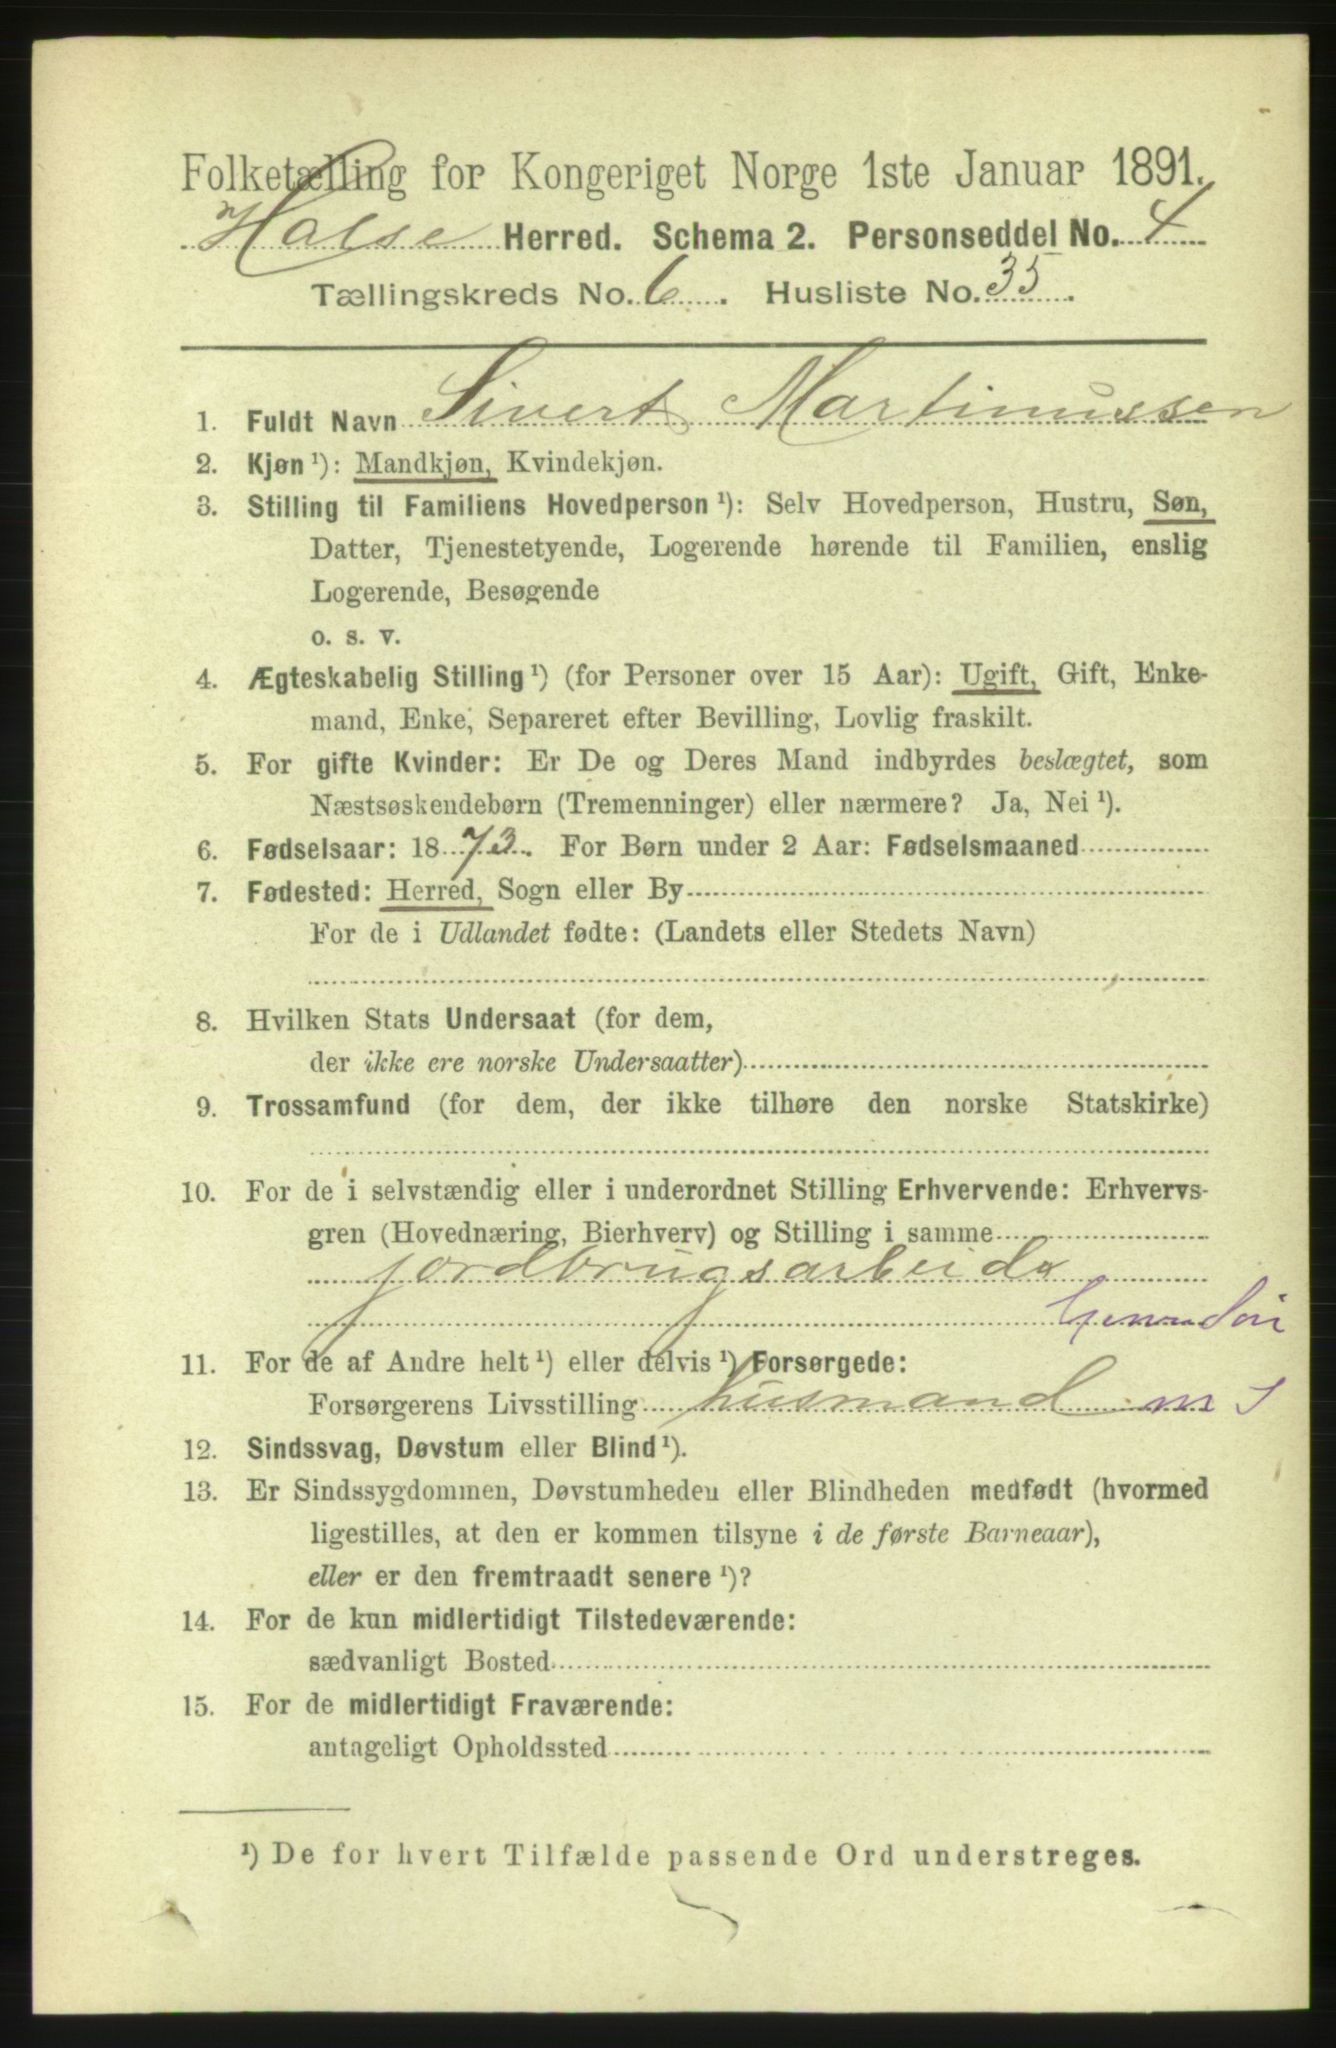 Folketælling for Kongeriget Norge 1ste Januar 1891.
Halse Herred. Schema 2. Personseddel No. 4
Tællingskreds No. 6. Husliste No. 35.
1. Fuldt Navn Sivert Martinussen
2. Kjøn ¹): Mandkjøn, Kvindekjøn.
3. Stilling til Familiens Hovedperson ¹): Selv Hovedperson, Hustru, Søn,
Datter, Tjenestetyende, Logerende hørende til Familien, enslig
Logerende, Besøgende
o. s. v.
4. Ægteskabelig Stilling ¹) (for Personer over 15 Aar): Ugift, Gift, Enke-
mand, Enke, Separeret efter Bevilling, Lovlig fraskilt.
5. For gifte Kvinder: Er De og Deres Mand indbyrdes beslægtet, som
Næstsøskendebørn (Tremenninger) eller nærmere? Ja, Nei ¹).
6. Fødselsaar: 1873. For Børn under 2 Aar: Fødselsmaaned
7. Fødested: Herred, Sogn eller By
For de i Udlandet fødte: (Landets eller Stedets Navn)
8. Hvilken Stats Undersaat (for dem,
der ikke ere norske Undersaatter)
9. Trossamfund (for dem, der ikke tilhøre den norske Statskirke)
10. For de i selvstændig eller i underordnet Stilling Erhvervende: Erhvervs-
gren (Hovednæring, Bierhverv) og Stilling i samme
jordbrugsarbeide
11. For de af Andre helt ¹) eller delvis ¹) Forsørgede:
Forsørgerens Livsstilling husmand m J
12. Sindssvag, Døvstum eller Blind ¹).
13. Er Sindssygdommen, Døvstumheden eller Blindheden medfødt (hvormed
ligestilles, at den er kommen tilsyne i de første Barneaar),
eller er den fremtraadt senere ¹)?
14. For de kun midlertidigt Tilstedeværende:
sædvanligt Bosted
15. For de midlertidigt Fraværende:
antageligt Opholdssted
¹) De for hvert Tilfælde passende Ord understreges.